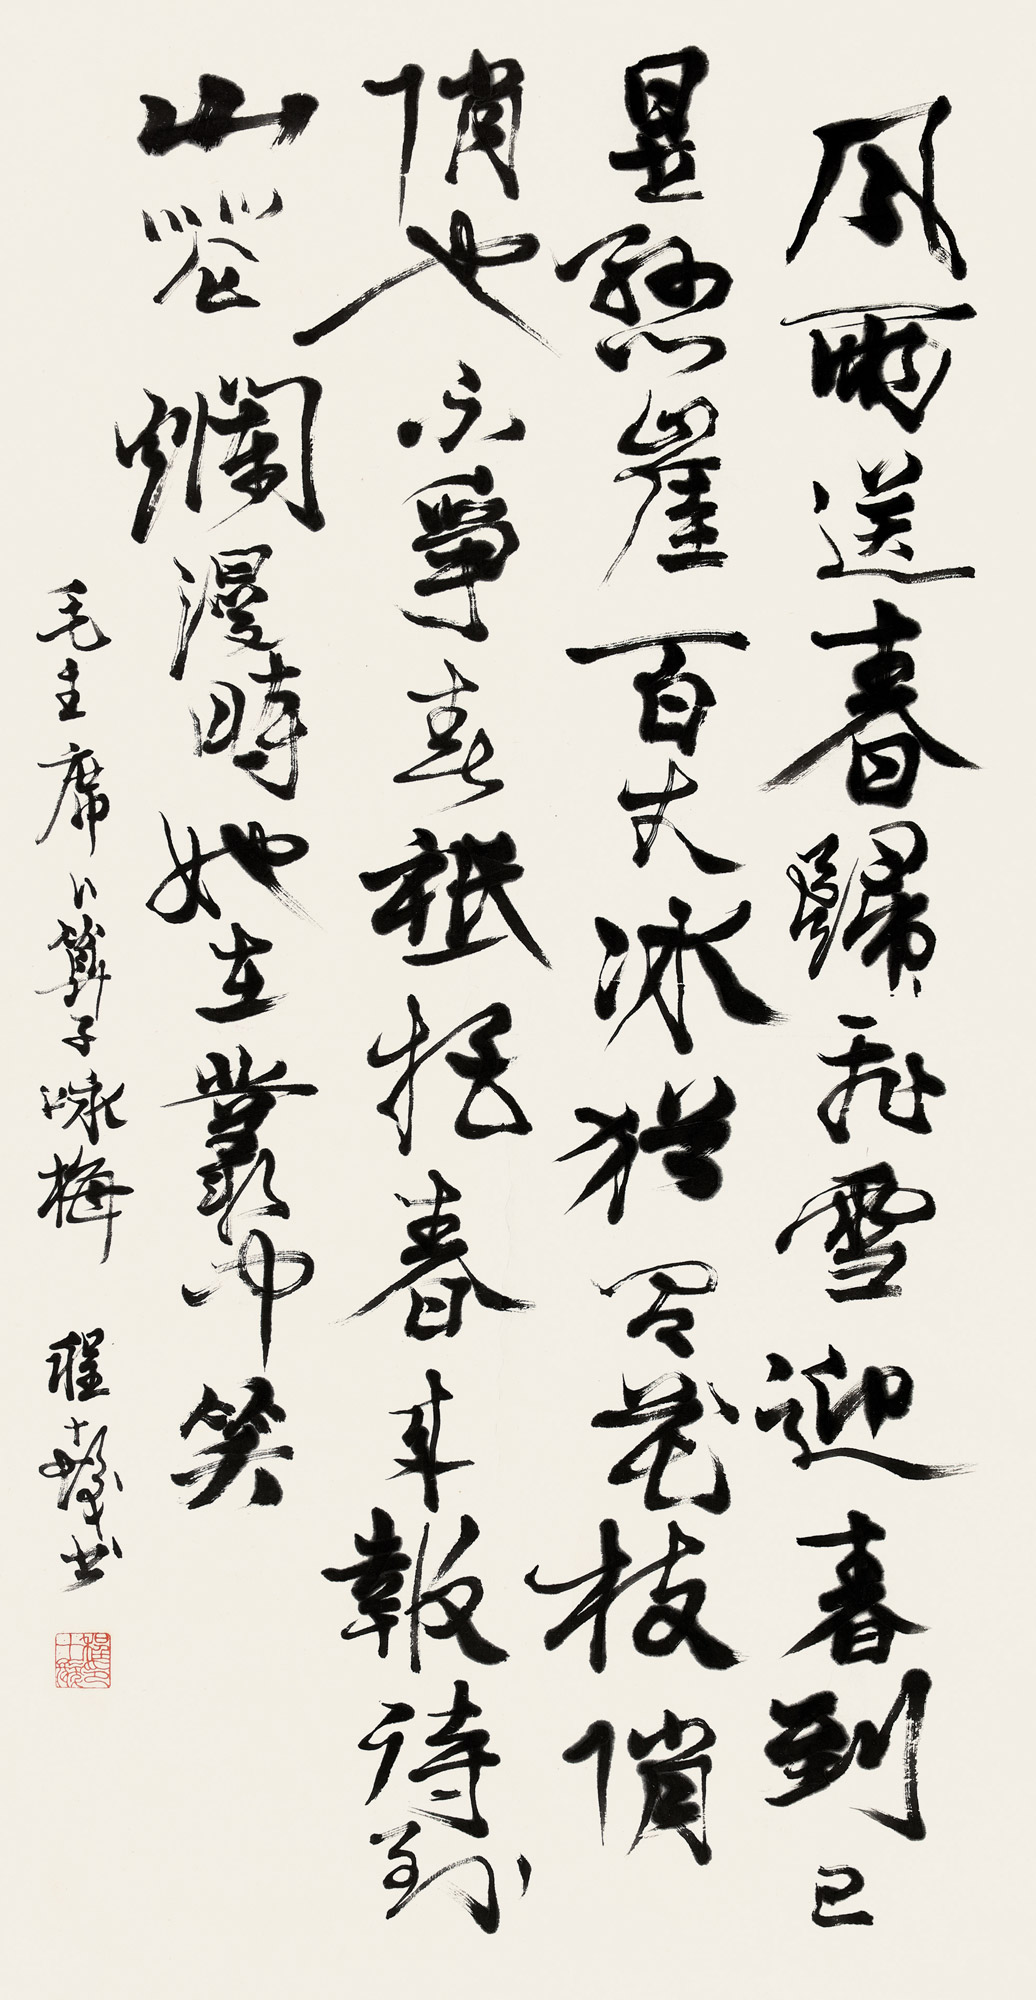 風雨送春歸飛雪迎春到已
是懸崖百丈冰猶有花枝俏
俏也不爭春祇把春来報待到
山花爛漫時她在叢中笑
毛主席卜算子咏梅 程十髮书